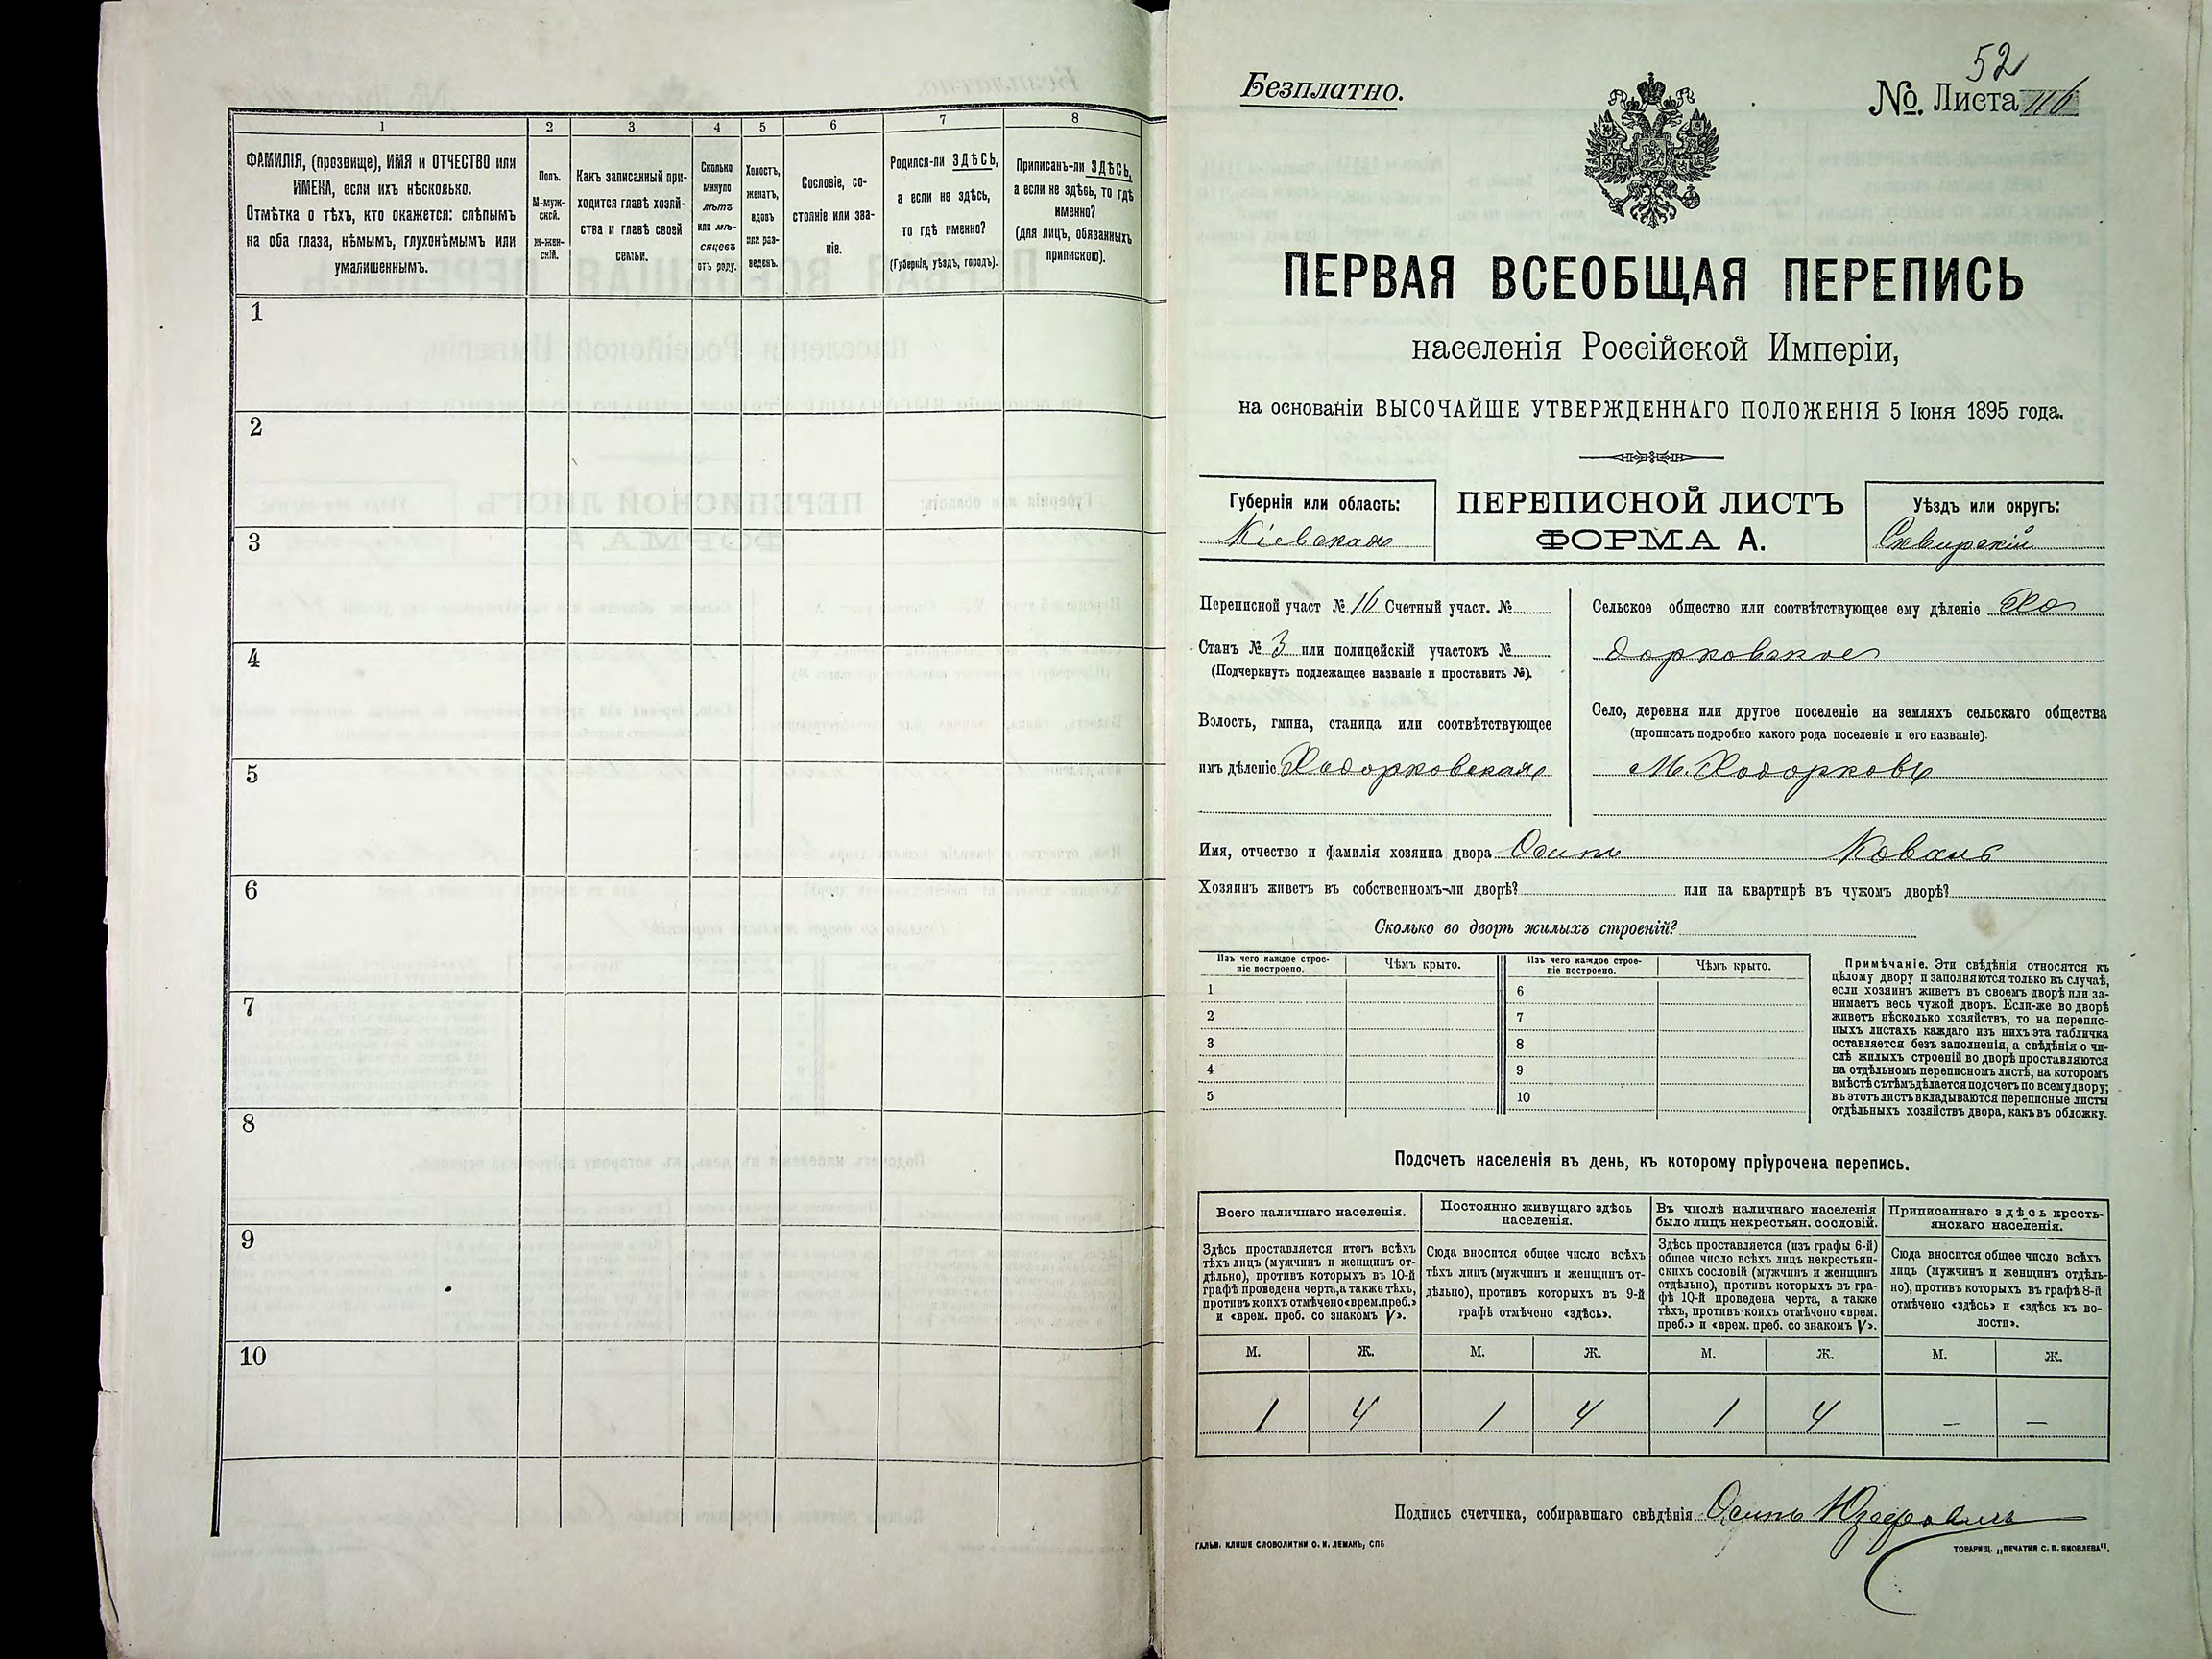 1
2
3
4
5
6
7
8
ФАМИЛІЯ, (прозвище), ИМЯ и ОТЧЕСТВО или
ИМЕНА, если ихъ нѣсколько.
Отмѣтка о тѣхъ, кто окажется: слѣпымъ
на оба глаза, нѣмымъ, глухонѣмымъ или
умалишеннымъ.
Полъ.
М-муж-
ской.
Ж-жен-
скій.
Какъ записанный при-
ходится главѣ хозяй-
ства и главѣ своей
семьи.
Сколько
минуло
лѣтъ
или мѣ-
сяцевъ
отъ роду.
Холостъ,
женатъ,
вдовъ
или раз-
веденъ.
Сословіе, со-
стояніе или зва-
ніе.
Родился-ли ЗДѢСЬ,
а если не здѣсь,
то гдѣ именно?
(Губернія, уѣздъ, городъ).
Приписанъ-ли ЗДѢСЬ,
а если не здѣсь, то гдѣ
именно?
(для лицъ, обязанныхъ
припискою).
1
2
3
4
5
6
7
8
9
10
52
Безплатно.
№. Листа 116
ПЕРВАЯ ВСЕОБЩАЯ ПЕРЕПИСЬ
населенія Россійской Имперіи,
на основаніи ВЫСОЧАЙШЕ УТВЕРЖДЕННАГО ПОЛОЖЕНІЯ 5 Іюня 1895 года.
Губернія или область:
Кіевская
ПЕРЕПИСНОЙ ЛИСТЪ
ФОРМА А.
Уѣздъ или округъ:
Сквирскій
Переписной участ № 16 Счетный участ. №
Станъ № 3 или полицейскій участокъ №
(Подчеркнуть подлежащее названіе и проставить №).
Волость, гмина, станица или соотвѣтствующее
имъ дѣленіе Ходорковская
Сельское общество или соотвѣтствующее ему дѣленіе Хо
дорковское
Село, деревня или другое поселеніе на земляхъ сельскаго общества
(прописать подробно какого рода поселеніе и его названіе).
М. Ходорковъ
Имя, отчество и фамилія хозяина двора Осипъ Коваль
Хозяинъ живетъ въ собственномъ-ли дворѣ? или на квартирѣ въ чужомъ дворѣ?
Сколько во дворѣ жилыхъ строеній?
Изъ чего каждое строе-
ніе построено.
Чѣмъ крыто.
Изъ чего каждое строе-
ніе построено.
Чѣмъ крыто.
1
2
3
4
5
6
7
8
9
10
Примѣчаніе. Эти свѣдѣнія относятся къ
цѣлому двору и заполняются только въ случаѣ,
если хозяинъ живетъ въ своемъ дворѣ или за-
нимаетъ весь чужой дворъ. Если-же во дворѣ
живетъ нѣсколько хозяйствъ, то на перепис-
ныхъ листахъ каждаго изъ нихъ эта табличка
оставляется безъ заполненія, а свѣдѣнія о чи-
слѣ жилыхъ строеній во дворѣ проставляются
на отдѣльномъ переписномъ листѣ, на которомъ
вмѣстѣ съ тѣмъ дѣлается подсчетъ по всему двору;
въ этотъ листъ вкладываются переписные листы
отдѣльныхъ хозяйствъ двора, какъ въ обложку.
Подсчетъ населенія въ день, къ которому пріурочена перепись.
Всего наличнаго населенія.
Здѣсь проставляется итогъ всѣхъ
тѣхъ лицъ (мужчинъ и женщинъ от-
дѣльно), противъ которыхъ въ 10-й
графѣ проведена черта, а также тѣхъ,
противъ коихъ отмѣчено «врем. преб.»
и «врем. преб. со знакомъ V».
Постоянно живущаго здѣсь
населенія.
Сюда вносится общее число всѣхъ
тѣхъ лицъ (мужчинъ и женщинъ от-
дѣльно), противъ которыхъ въ 9-й
графѣ отмѣчено «здѣсь».
Въ числѣ наличнаго населенія
было лицъ некрестьян. сословій.
Здѣсь проставляется (изъ графы 6-й)
общее число всѣхъ лицъ некрестьян-
скихъ сословій (мужчинъ и женщинъ
отдѣльно), противъ которыхъ въ гра-
фѣ 10-й проведена черта, а также
тѣхъ, противъ коихъ отмѣчено «врем.
преб.» и «врем. преб. со знакомъ V».
Приписаннаго здѣсь кресть-
янскаго населенія.
Сюда вносится общее число всѣхъ
лицъ (мужчинъ и женщинъ отдѣль-
но), противъ которыхъ въ графѣ 8-й
отмѣчено «здѣсь» и «здѣсь къ во-
лости».
М. Ж. М. Ж. М. Ж. М. Ж.
1 4 1 4 1 4 — —
Подпись счетчика, собиравшаго свѣдѣнія Осипъ
ГАЛЬВ. КЛИШЕ СЛОВОЛИТНИ О. И. ЛЕМАНЪ, СПБ
ТОВАРИЩ. „ПЕЧАТНЯ С. П. ЯКОВЛЕВА".